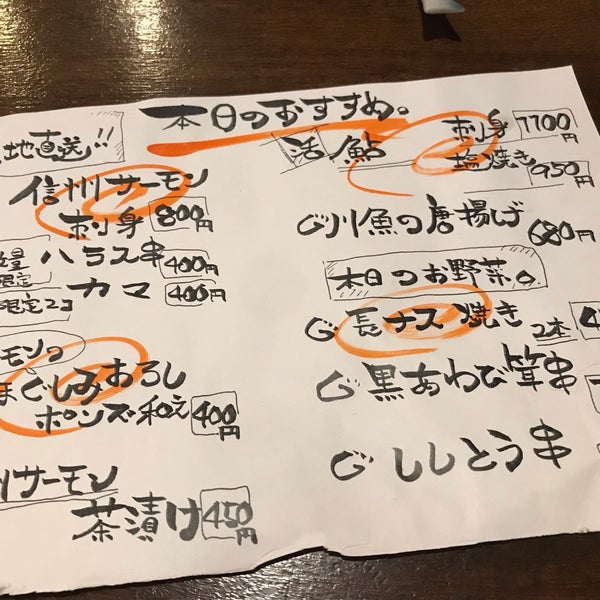 本日のおすすめ。
地直送!!
信州サーモン
刺身 800円
限定 ハラス串 400円
限定2コ カマ 400円
モンの
まぐしみおろし
ポンズ和え 400円
サーモン
茶漬け 450円
活 鮎 刺身 1100円
塩焼き 950円
川魚の唐揚げ 680円
本日のお野菜。
長ナス焼き 2本
黒あわび茸串
ししとう串